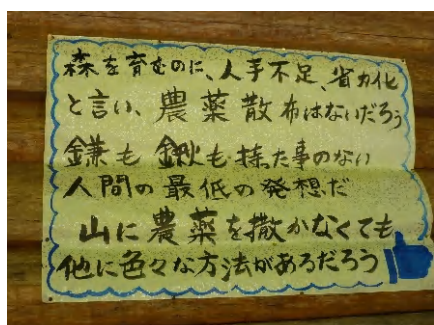 森を育むのに、人手不足、省力化
と言い、農薬散布はないだろう
鎌も鍬も持った事のない
人間の最低の発想だ
山に農薬を撒かなくても
他に色々な方法があるだろう